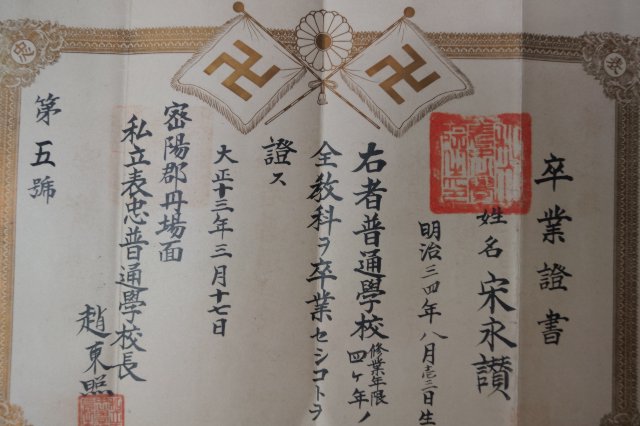 卒業證書
姓名 宋永讃
明治三四年八月壱二日生
右者普通學校修業年限四ヶ年ノ
全敎科ヲ卒業セシコトヲ
證ス
大正十三年三月十七日
密陽郡丹場面
私立表忠普通學校長
趙東熙
第五號